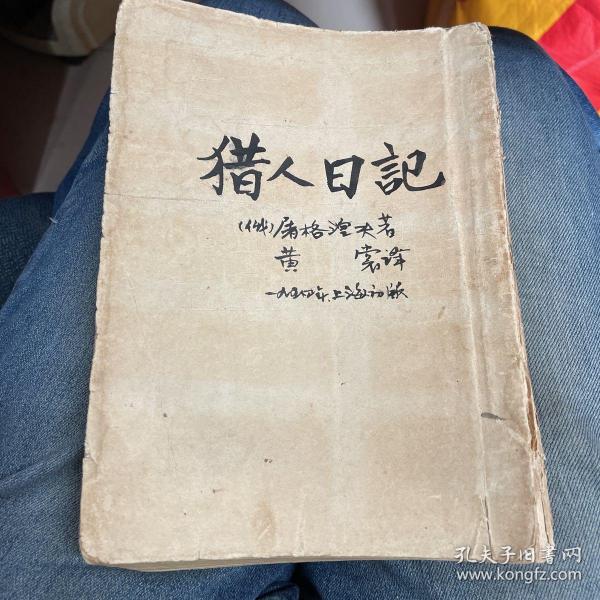 猎人日記
(俄)屠格涅夫著
黄裳译
一九五四年.上海初版
孔夫子旧書网
www.kongfz.com